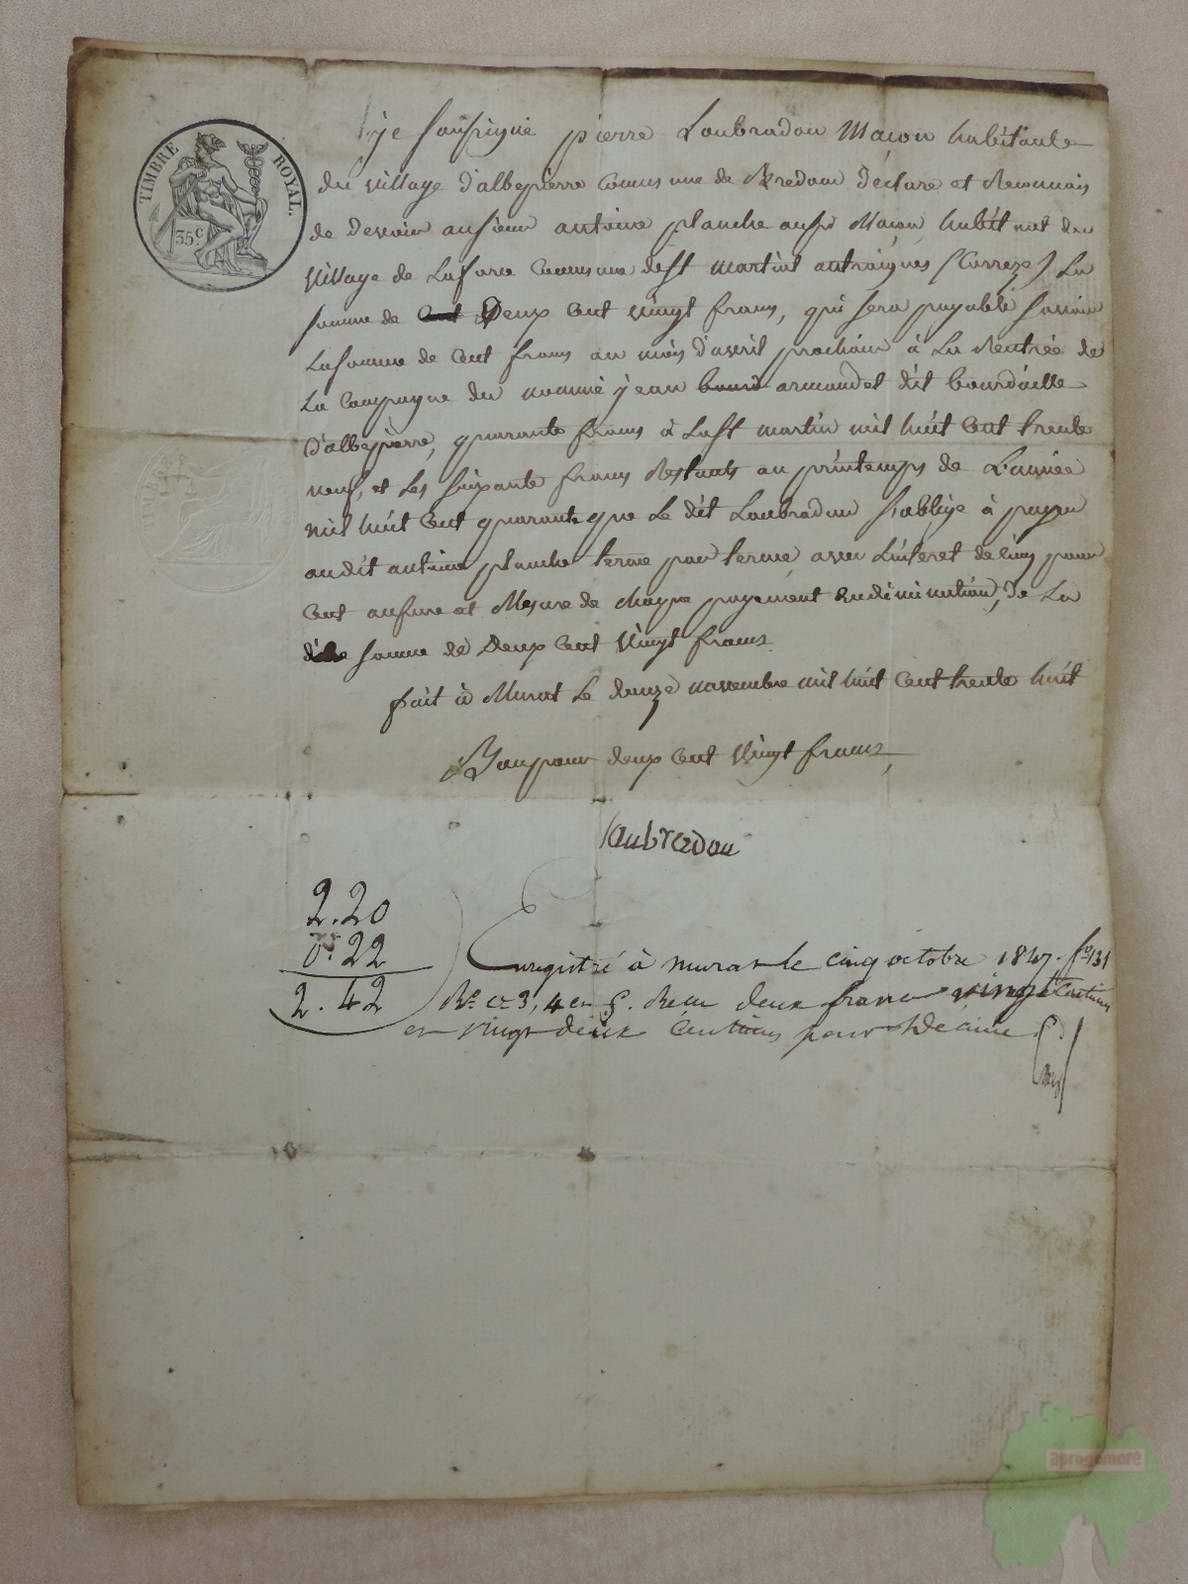 TIMBRE ROYAL.
35c
je soussigné pierre Loubradou Macon habitant
du village d'albepierre Commune de Bredom déclare et Reconnais
de devoir ausieur antoine planche aussi Macon habitant du
village de Lafarie Commune de st martial antraigues (Correze) La
somme de Cent Deux Cent vingt francs, qui sera payable savoir
La somme de Cent francs au mois d'avril prochain à La Rentrée de
La Campagne du nommé jean armandet dit bourdaille
d'albepierre, quarante francs à La st martin mil huit Cent trente
neuf, et Les soixante francs Restants au printemps de L'année
mil huit Cent quarante que Le dit Loubradou s'oblige à payer
audit antoine planche terme par terme, avec L'interet de cinq pour
Cent aufure et Mesure de chaque payement en diminution, de La
dite somme de Deux Cent Vingt francs
fait à Murat Le douze novembre mil huit Cent trente huit
Bon pour deux Cent Vingt francs
loubredou
2.20
0.22
2.42
Enregistré à murat le cinq octobre 1847. fo 131
Ro Ce 3, 4 et 5. Recu deux francs vingt Centimes
et vingt deux Centimes pour décime
aprogemere